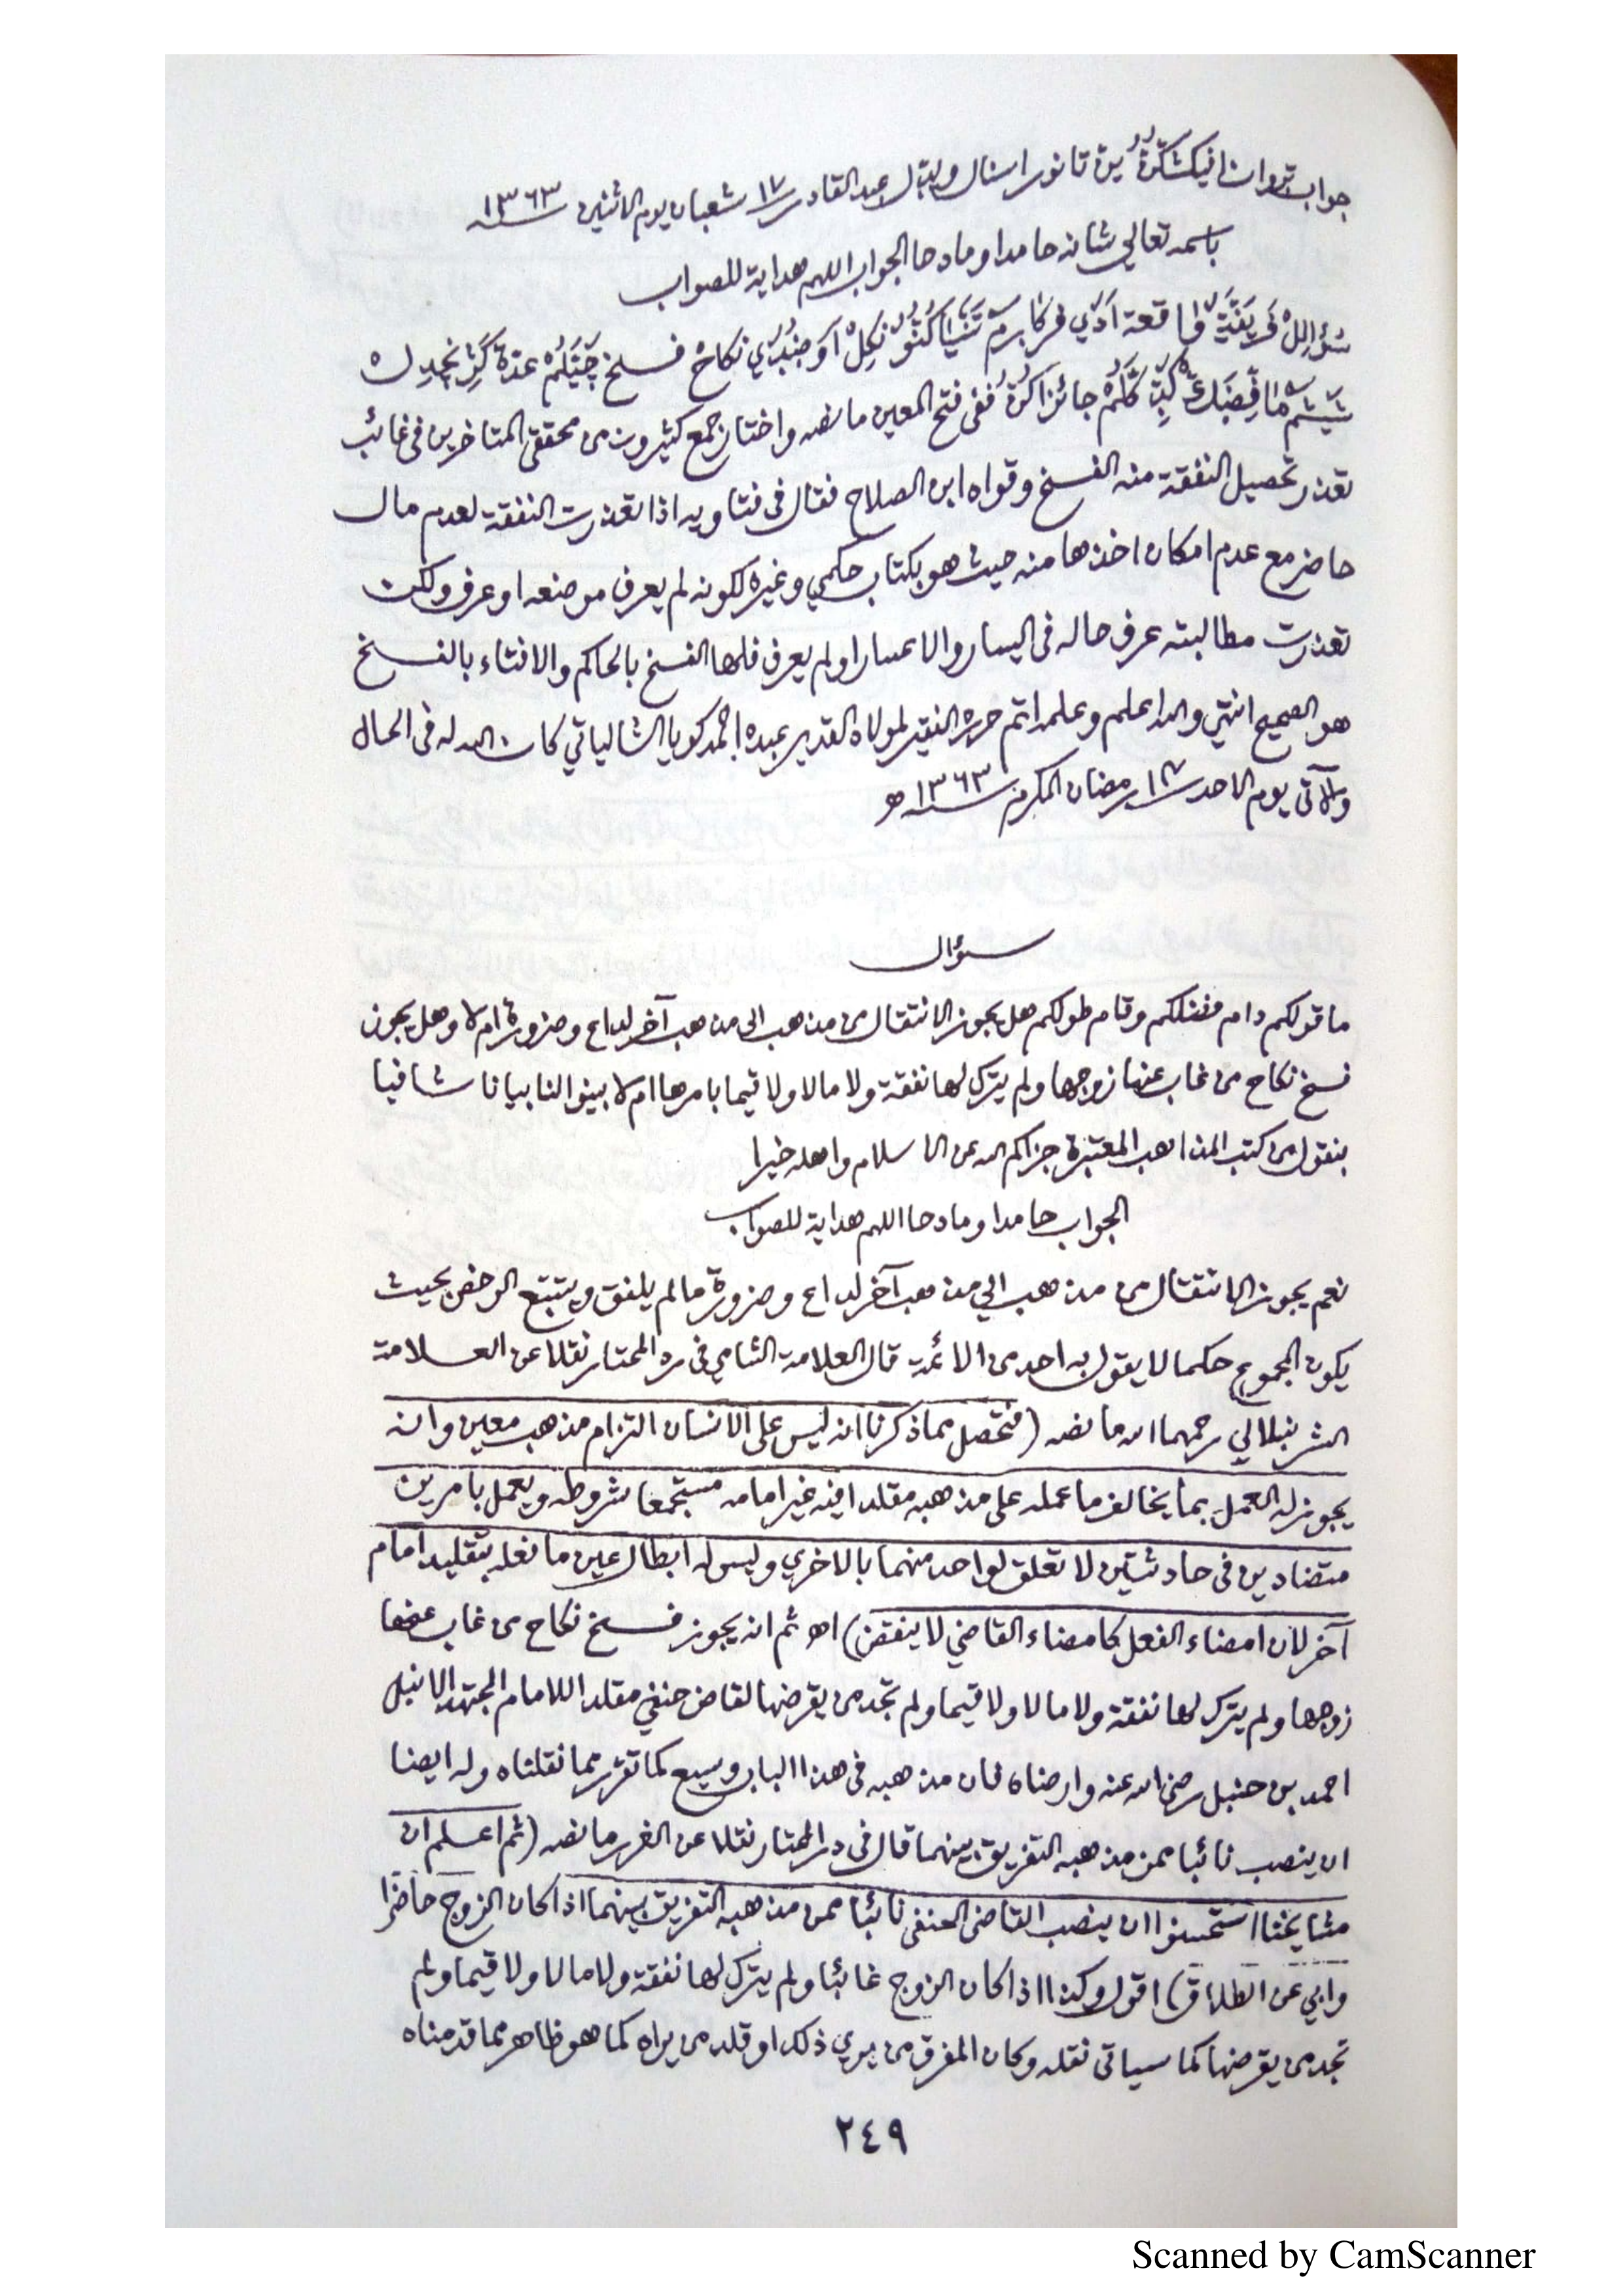 جواب تروان انيكشكرن ين تانور اسنال ويتل عبد القادر ١٧ شعبان يوم الاثنين ١٣٦٣
باسمه تعالي شانه حامدا ومادحا الجواب اللهم هداية للصواب
سؤالل واقعة نكاح فسخ عدة
جائزاكن ففي فتح المعين ما نصه واختار جمع كثيرون من محققي المتاخرين في غائب
تعذر تحصيل النفقة منه الفسخ وقواه ابن الصلاح فقال في فتاويه اذا تعذرت النفقة لعدم مال
حاضر مع عدم امكان اخذها منه حيث هو بكتاب حكمي وغيره لكونه لم يعرف موضعه او عرف ولكن
تعذرت مطالبته عرف حاله في اليسار والاعسار او لم يعرف فلها الفسخ بالحاكم والافتاء بالفسخ
هو الصحيح انتهي والله اعلم وعلمه اتم حرره الفقير لمولاه القدير عبده احمد كويا الشالياتي كان الله له في الحال
والآتي يوم الاحد ١٨ رمضان المكرم ١٣٦٣ هـ
سؤال
ما قولكم دام فضلكم وقام طولكم هل يجوز الانتقال من مذهب الى مذهب آخر لداع وضرورة ام لا وهل يجوز
فسخ نكاح من غاب عنها زوجها ولم يترك لها نفقة ولا مالا ولا قيما بامرها ام لا بينوا لنا بيانا شافيا
بنقول من كتب المذاهب المعتبرة جزاكم الله عن الاسلام واهله خيرا
الجواب حامدا ومادحا اللهم هداية للصواب
نعم يجوز الانتقال من مذهب الي مذهب آخر لداع وضرورة ما لم يلفق ويتتبع الرخص بحيث
يكون المجموع حكما لا يقول به احد من الائمة قال العلامة الشامي في رد المحتار نقلا عن العلامة
الشرنبلالي رحمهما الله ما نصه (فتحصل مما ذكرنا انه ليس على الانسان التزام مذهب معين وانه
يجوز له العمل بما يخالف ما عمله على مذهبه مقلدا فيه غير امامه مستجمعا شروطه ويعمل بامرين
متضادين في حادثتين لا تعلق لواحد منهما بالاخري وليس له ابطال عين ما فعله بتقليد امام
آخر لان امضاء الفعل كامضاء القاضي لا ينقض) اهـ ثم انه يجوز فسخ نكاح من غاب عنها
زوجها ولم يترك لها نفقة ولا مالا ولا قيما ولم تجد من يقرضها لقاض حنفي مقلدا للامام المجتهد الانبل
احمد بن حنبل رضي الله عنه وارضاه فان مذهبه في هذا الباب وسيع كما تقرر مما نقلناه وله ايضا
ان ينصب نائبا ممن مذهبه التفريق بينهما قال في در المحتار نقلا عن الغرر ما نصه (ثم اعلم ان
مشايخنا استحسنوا ان ينصب القاضي الحنفي نائبا ممن مذهبه التفريق بينهما اذا كان الزوج حاضرا
وابي عن الطلاق) اقول وكذا اذا كان الزوج غائبا ولم يترك لها نفقة ولا مالا ولا قيما ولم
تجد من يقرضها كما سياتي نقله وكان المفرق من يري ذلك او قلد من يراه كما هو ظاهر مما قدمناه
٢٤٩
Scanned by CamScanner